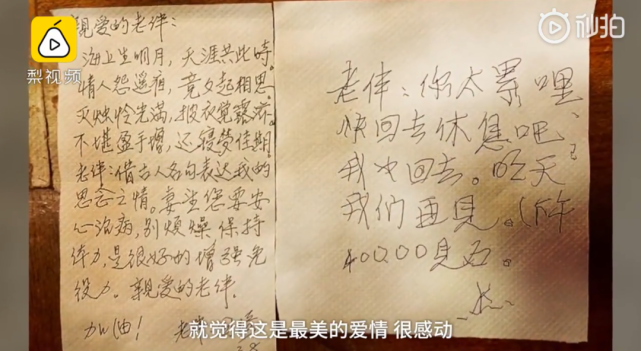 梨视频
秒拍
亲爱的老伴:
海上生明月,天涯共此时。
情人怨遥夜,竟夕起相思
灭烛怜光满,披衣觉露滋。
不堪盈手赠,还寝梦佳期
老伴:借古人名句表达我的
思念之情。要坐您要安
心治病,别烦燥保持
体力,是很好的增强免
疫力。亲爱的老伴,
加油!
老伴
3.8
老伴:你太累哩
快回去休息吧、
我也回去。明天
我们再见。(下午
400.00见面。
就觉得这是最美的爱情 很感动